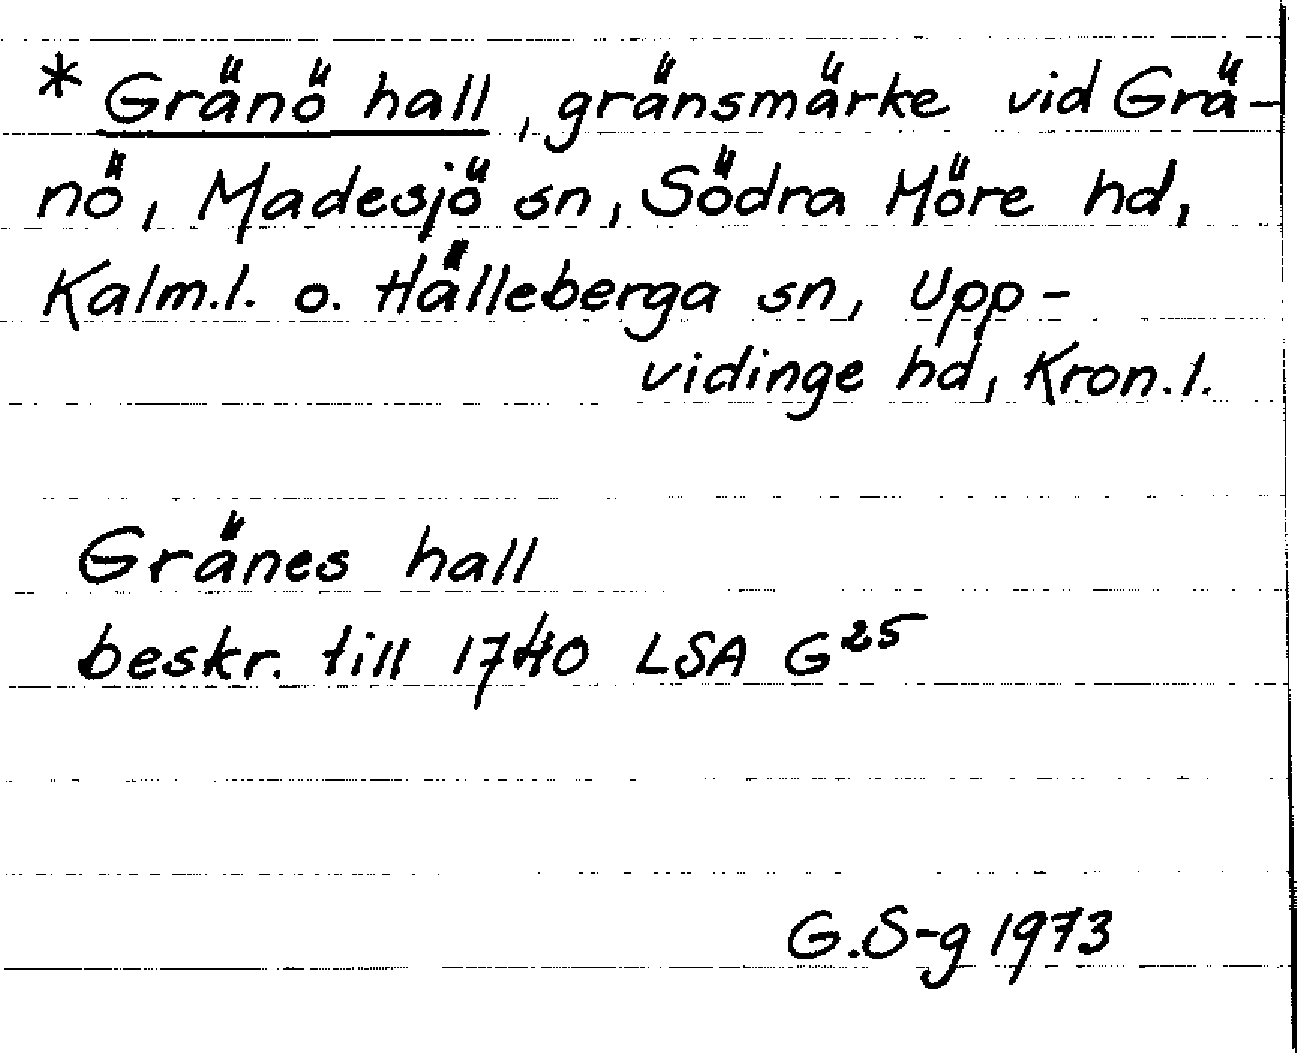 * Gränö hall, gränsmärke vid Grä-
nö, Madesjö sn, Södra Möre hd,
Kalm.l. o. Hälleberga sn, Upp-
vidinge hd, Kron.l.
Gränes hall
beskr. till 1740 LSA G²⁵
G.S-g 1973